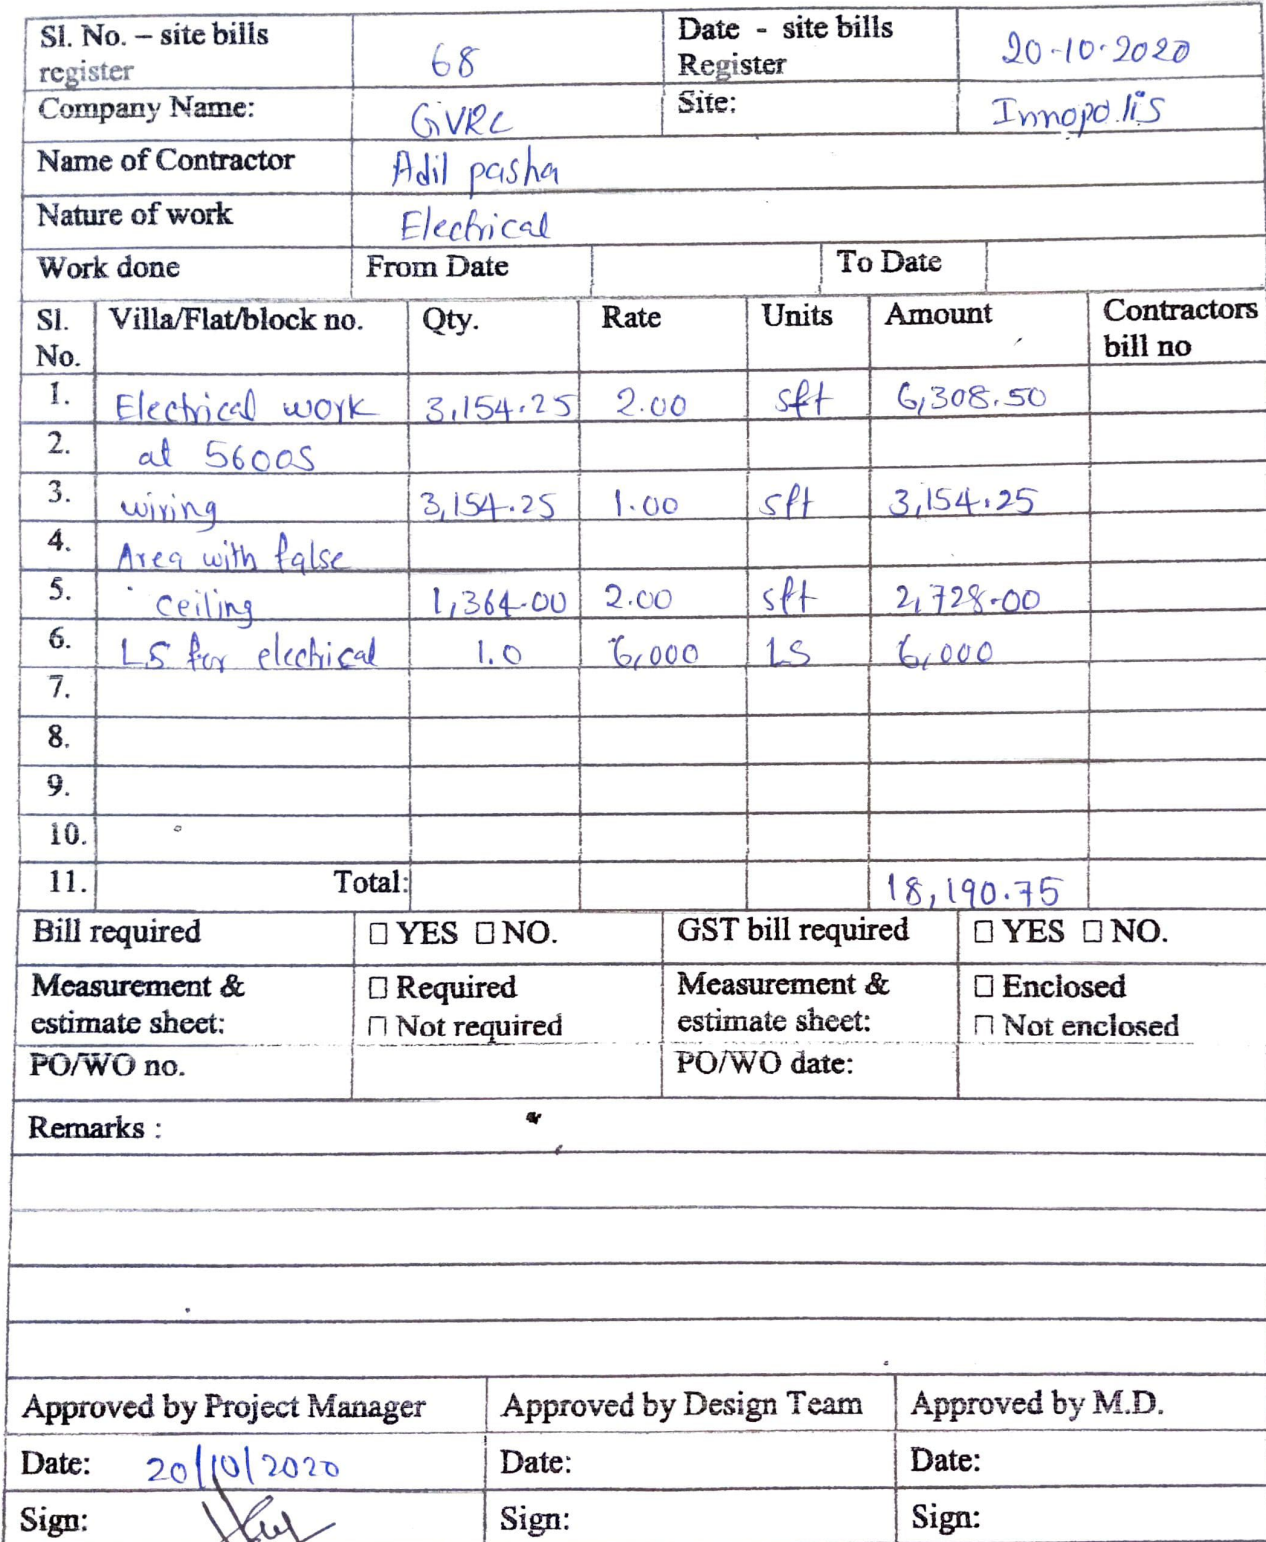 Sl. No. – site bills register 68 Date - site bills Register 20-10-2020
Company Name: GVRC Site: Innopolis
Name of Contractor Adil pasha
Nature of work Electrical
Work done From Date To Date
Sl. No. Villa/Flat/block no. Qty. Rate Units Amount Contractors bill no
1. Electrical work 3,154.25 2.00 sft 6,308.50
2. at 5600S
3. wiring 3,154.25 1.00 sft 3,154.25
4. Area with false
5. ceiling 1,364.00 2.00 sft 2,728.00
6. LS for electrical 1.0 6,000 LS 6,000
7.
8.
9.
10.
11. Total: 18,190.75
Bill required □ YES □ NO. GST bill required □ YES □ NO.
Measurement & estimate sheet: □ Required □ Not required Measurement & estimate sheet: □ Enclosed □ Not enclosed
PO/WO no. PO/WO date:
Remarks :
Approved by Project Manager Approved by Design Team Approved by M.D.
Date: 20/10/2020 Date: Date:
Sign: Sign: Sign: